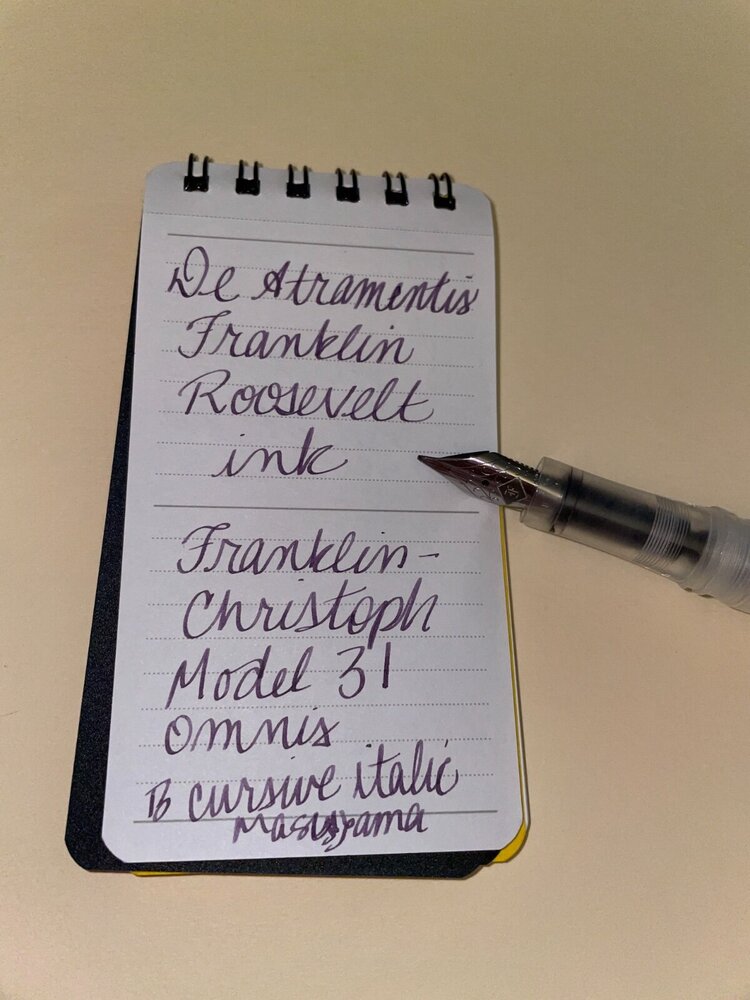 De Atramentis
Franklin
Roosevelt
ink
Franklin-
Christoph
Model 31
Omnis
B cursive italic
Masuyama